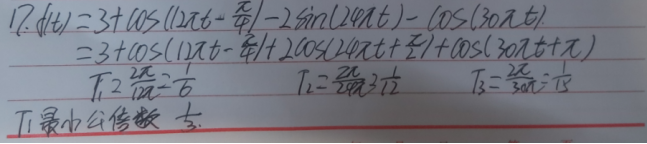 17. f(t)=3+cos(12πt-π/4)-2sin(24πt)-cos(30πt)
=3+cos(12πt-π/4)+2cos(24πt+π/2)+cos(30πt+π)
T₁=2π/12π=1/6 T₂=2π/24π=1/12 T₃=2π/30π=1/15
T₁最小公倍数 1/3.